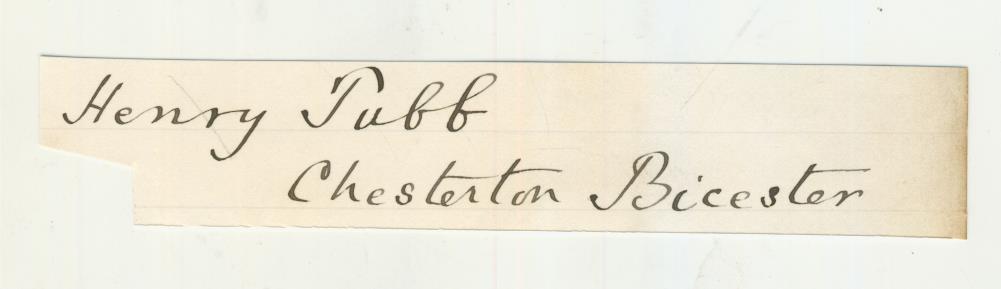 Henry Tubb
Chesterton Bicester